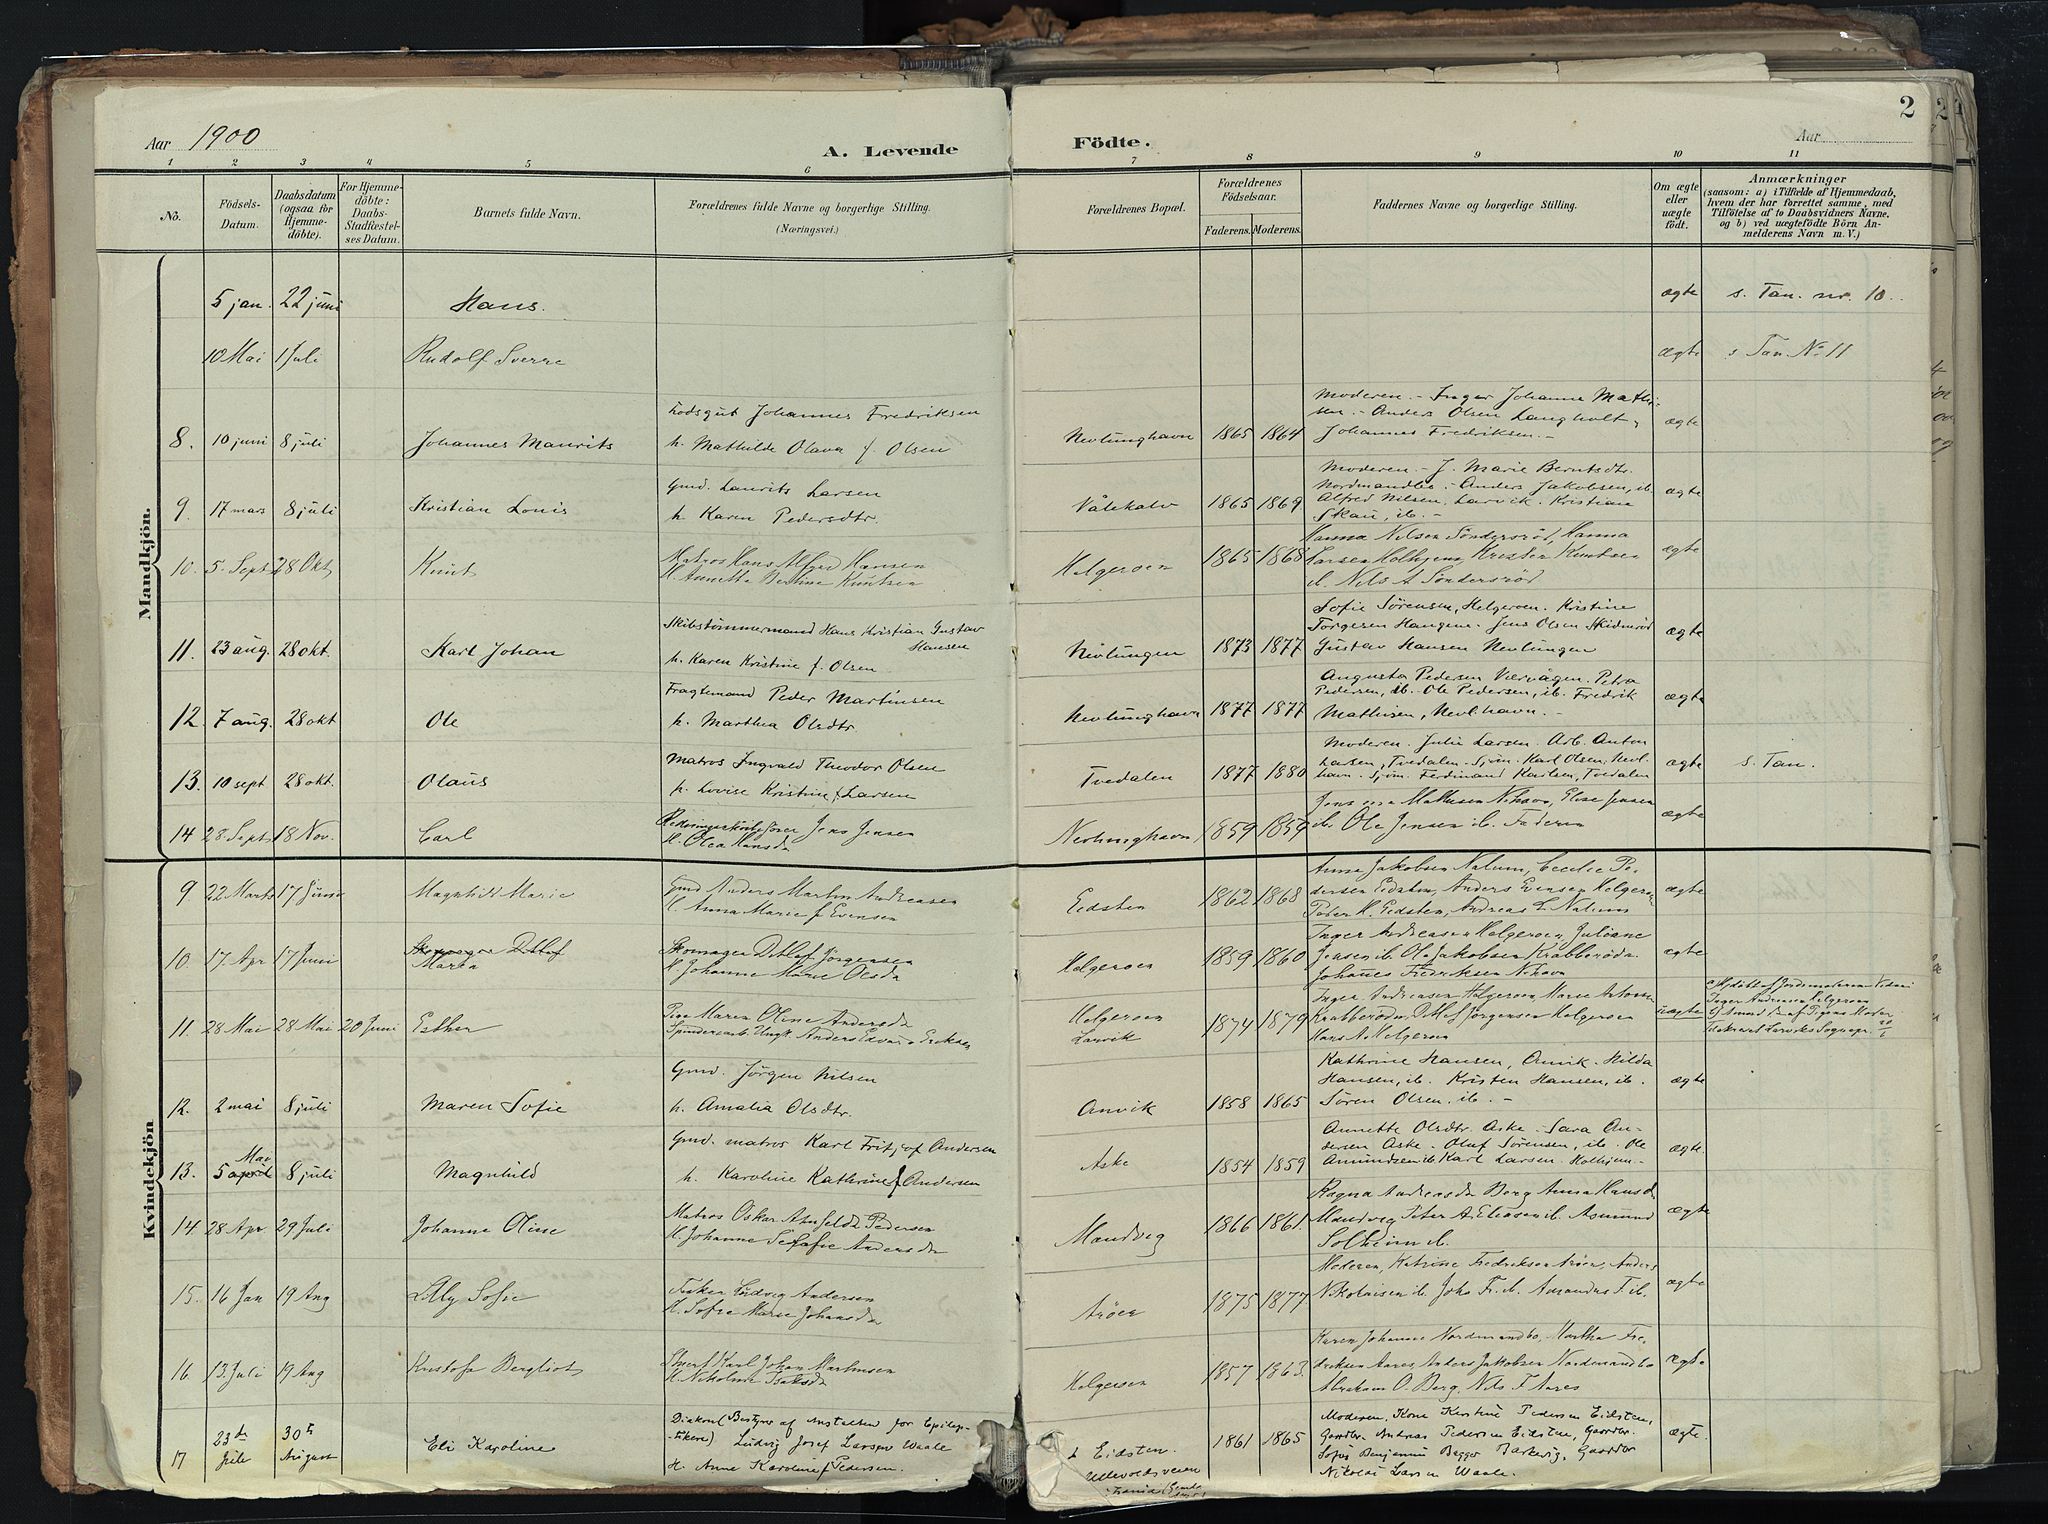 Aar 1900
A. Levende Födte.
Aar
2
1 2 3 4 5 6 7 8 9 10 11
No.
Födsels-Datum.
Daabsdatum (ogsaa for Hjemme-döbte).
For Hjemme-döbte: Daabs-Stadfæstel-ses Datum.
Barnets fulde Navn.
Forældrenes fulde Navne og borgerlige Stilling.
(Næringsvei.)
Forældrenes Bopæl.
Forældrenes Födselsaar.
Faderens. Moderens.
Faddernes Navne og borgerlige Stilling.
Om ægte eller uægte födt.
Anmærkninger
(saasom: a) i Tilfælde af Hjemmedaab,
hvem der har forrettet samme, med
Tilföielse af to Daabsvidners Navne.
og b) ved uægtefödte Börn An-
melderens Navn m. V.)
Mandkjön.
5 jan. 22 juni Hans. ægte s. Tan. nr. 10.
10 Mai 1 Juli Rudolf Sverre ægte s Tan. No 11
8. 10 juni 8 juli Johannes Maurits
Lodsgut Johannes Fredriksen
h. Mathilde Olava f. Olsen
Nevlunghavn 1865 1864
Moderen. - Inger Johanne Mathi-
sen. - Anders Olsen Langholt,
Johannes Fredriksen. -
ægte
9. 17 mars 8 juli Kristian Louis
Gmd. Laurits Larsen
h. Karen Pedersdtr.
1865 1869
Moderen. - J. Marie Berntsdtr.
Nordmandbo. - Anders Jakobsen, ib.
Alfred Nilsen. Larvik. Kristian
Skau, ib. -
ægte
10. 5. Sept 28 Okt Knut
Matros Hans Alfred Hansen
H. Annette Bertine Knutsen
Helgeroen 1865 1868
Hanna Nilsen Söndersröd, Hanna
Larsen Holhjem, Krister Knutsen
ib. Nils A Söndersröd
ægte
11. 23 aug. 28 okt. Karl Johan
Skibstömmermand Hans Kristian Gustav
Hansen
h. Karen Kristine f. Olsen
Nevlungen 1873 1877
Sofie Sörensen, Helgeroen. Kristine
Torgersen Haugene. Jens Olsen
Gustav Hansen Nevlungen
ægte
12. 7 aug. 28 okt Ole
Fragtemand Peder Martinsen
h. Marthea Olsdtr.
Nevlunghavn 1877 1877
Augusta Pedersen Værvågen. Petra
Pedersen, ib. Ole Pedersen, ib. Fredrik
Mathisen, Nevl.havn. -
ægte
13. 10 sept 28 okt. Olaus
Matros Ingvald Theodor Olsen
h. Lovise Kristine f. Larsen
Tvedalen 1877 1880
Moderen. Julie Larsen. Arb. Anton
Larsen, Tvedalen. Sjöm. Karl Olsen, Nevl.
havn. Sjöm. Ferdinand Karlsen, Tvedalen
ægte s. Tan.
14 28. Sept 18 Nov. Carl
Jens Jensen
H. Olea Hansda
Nevlunghavn 1859 1859
Mathisen N.havn, Elise Jensen
ib. Ole Jensen ib. Faderen
ægte
Kvindekjön
9 22 Marts 17 Juni Magnhild Marie
Gmd Anders Martin Andreasen
H. Anna Marie f Evensen
Eidsten 1862 1868
Anna Jakobsen Nalum, Cecilie Pe-
dersen Eidsten, Anders Evensen Helgeroen
Peder H. Eidsten, Andreas L. Nalum
ægte
10. 17. Apr 17 Juni Skomager Ditlef
Marta
Skomager Ditlef Jörgensen
H. Johanne Marie Olsda
Helgeroen 1859 1860
Inger Andreasen Helgeroen, Juliane
Jensen ib. Ole Jakobsen Krabberöd.
Johannes Fredriksen N.havn
ægte
11. 28 Mai 28 Mai 20 Juni Esther
Pige Maren Oline Andersda
Ungk. Anders Edvard Eriksen
Helgeroen
Larvik
1874 1879
Inger Andreasen Helgeroen, Marie Antonsen
Krabberöd, Ditlef Jörgensen Helgeroen
Hans A. Helgeroen
uægte
Inger Andreasen Helgeroen
12. 2 mai 8 juli Maren Sofie
Gmd. Jörgen Nilsen
h. Amalia Olsdtr.
Omvik 1858 1865
Kathrine Hansen, Omvik. Hilda
Hansen, ib. Kristen Hansen, ib.
Sören Olsen, ib. -
ægte
13. 5 april Mai 8 juli Magnhild
Gmd. matros Karl Fritjof Andersen
h. Karoline Kathrine f. Andersen
Aske 1854 1859
Annette Olsdtr. Aske. Sara An-
dersen Aske. Oluf Sörensen, ib. Ole
Amundsen ib. Karl Larsen. Holhjem. -
ægte
14. 28 Apr. 29 Juli Johanne Oline
Matros Oskar Arnfeldt Pedersen
H. Johanne Sefafie Andersda
Mandvig 1866 1861
Ragna Andreasda Berg Anna Hansda
Mandvig, Peter A. Eliasen ib. Asmund
Solheim ib.
ægte
15. 16 Jan 19 Aug Lilly Sofie
Fisker Ludvig Andersen
H. Sofie Marie Johansda
Aröen 1875 1877
Moderen, Katrine Fredriksen Aröen, Anders
Nikolaisen ib. Johs Fr. ib. Amandus F. ib.
ægte
16 13. Juli 19 Aug Kristofa Bergliot
Karl Johan Martinsen
H. Nikoline Isaksda
Helgeroen 1857 1863
Karen Johanne Nordmandbo, Martha Fre-
driksen Aarös, Anders Jakobsen Nordmandbo
Abraham O. Berg, Nils F. Aarös
ægte
17 23de Juli 30te August Eli Karoline
Diakon (Bestyrer af Anstalten for Epilep-
tikere) Ludvig Josef Larsen Waale
H. Anne Karoline f. Pedersen.
Eidsten.
Ullevoldsveien
1861 1865
Moderen, Kone Kirstine Pedersen Eidsten,
Gaardbr. Andreas Pedersen Eidsten, Gaardbr.
Sofus Benjamin Bagger Barkevig, Gaardbr
Nikolai Larsen Waale.
ægte.